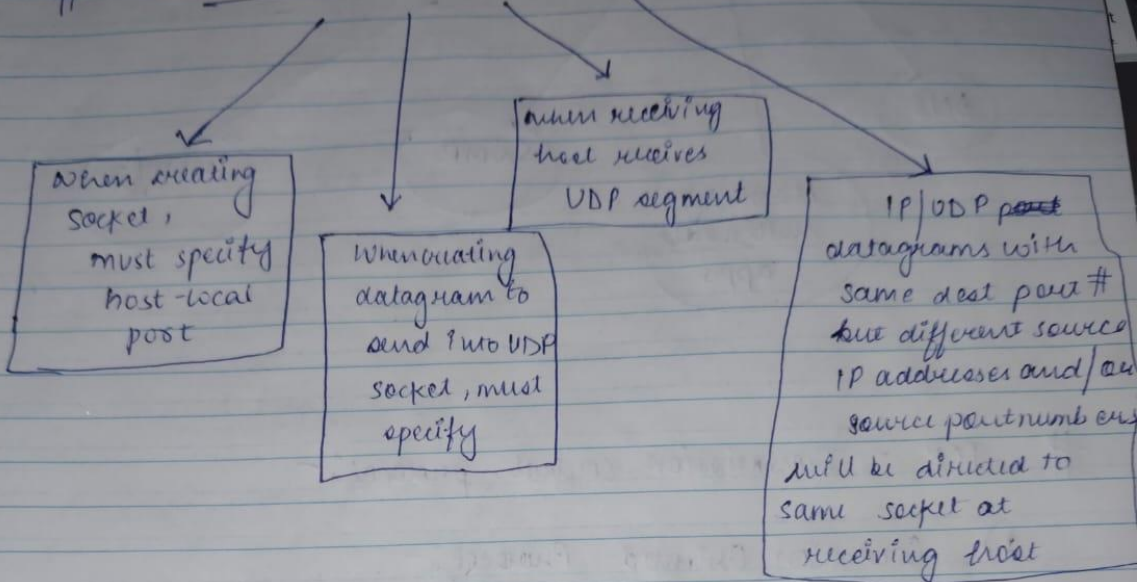 When creating
socket,
must specify
host-local
port
When creating
datagram to
send into UDP
socket, must
specify
when receiving
host receives
UDP segment
IP/UDP
datagrams with
same dest port #
but different source
IP addresses and/or
source port numbers
will be directed to
same socket at
receiving host